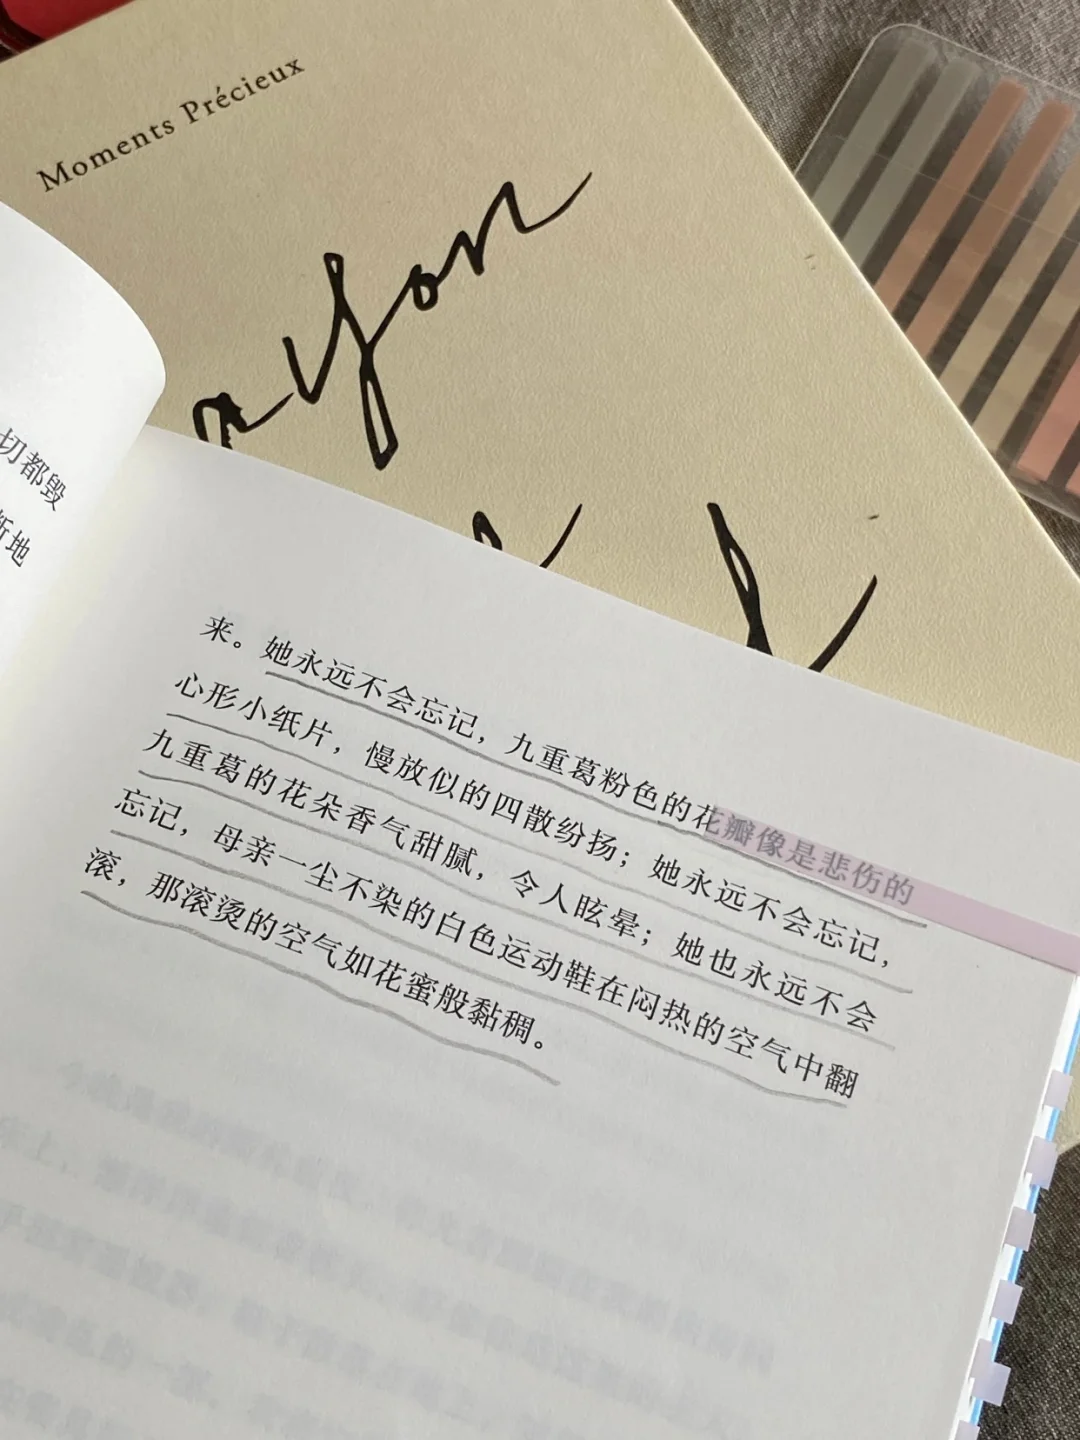 Moments Précieux
切都毁
地
来。她永远不会忘记，九重葛粉色的花瓣像是悲伤的
心形小纸片，慢放似的四散纷扬；她永远不会忘记，
九重葛的花朵香气甜腻，令人眩晕；她也永远不会
忘记，母亲一尘不染的白色运动鞋在闷热的空气中翻
滚，那滚烫的空气如花蜜般黏稠。